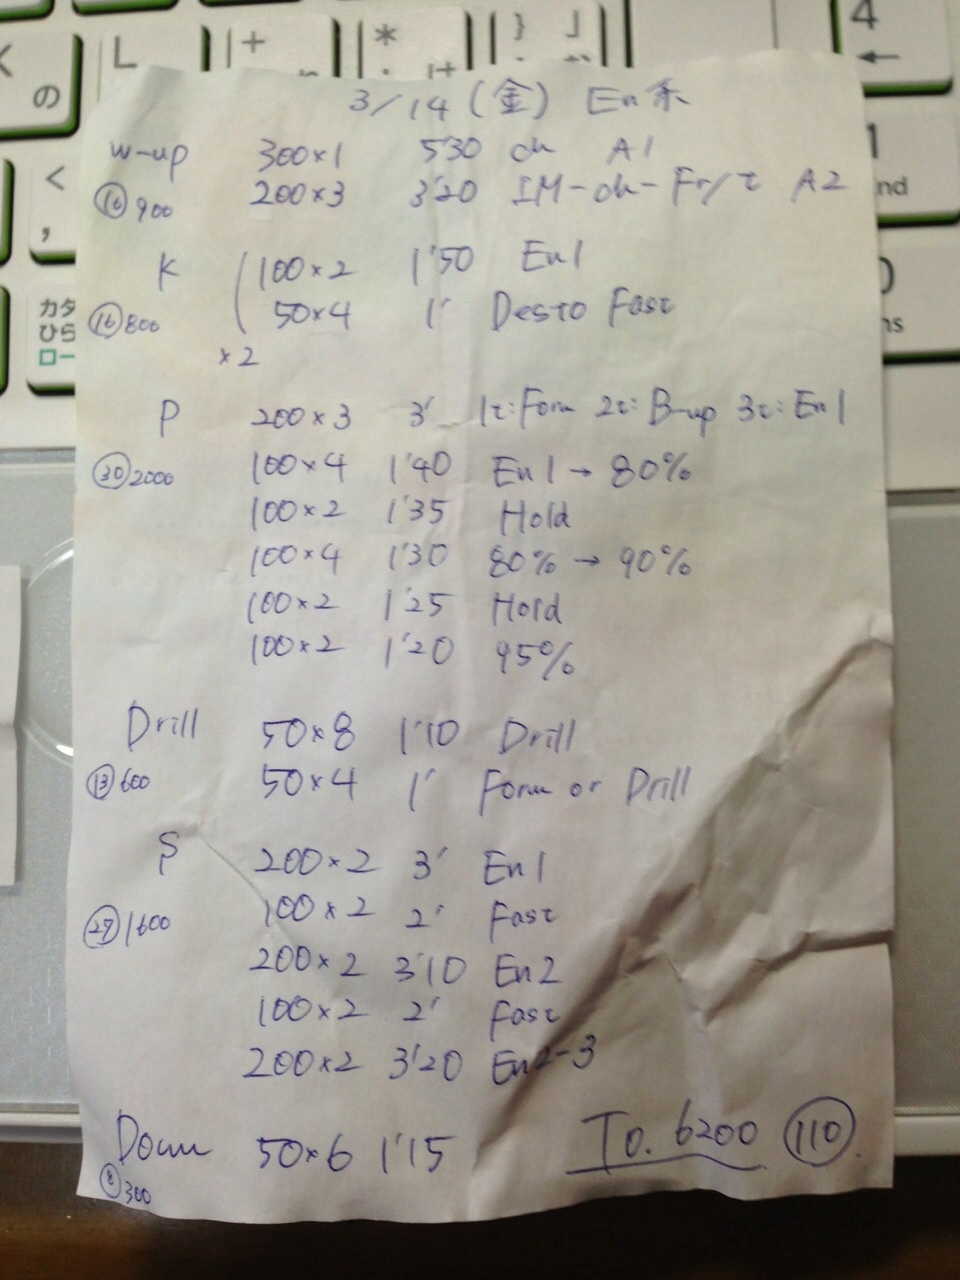 の
L
+
*
}
」
け
4
←
<
,
1
nd
カタ
ひら
ロー
3/14 (金) En系
W-up 300×1 5'30 ch A1
⑯900 200×3 3'20 IM-ch-Fr/t A2
K 100×2 1'50 En1
⑯800 50×4 1' Des to Fast
×2
P 200×3 3' 1t:Form 2t:B-up 3t:En1
㉚2000 100×4 1'40 En1→80%
100×2 1'35 Hold
100×4 1'30 80%→90%
100×2 1'25 Hold
100×2 1'20 95%
Drill 50×8 1'10 Drill
⑬600 50×4 1' Form or Drill
S 200×2 3' En1
1600 100×2 2' Fast
200×2 3'10 En2
100×2 2' Fast
200×2 3'20 En2-3
Down 50×6 1'15 To. 6200 (110).
⑧300